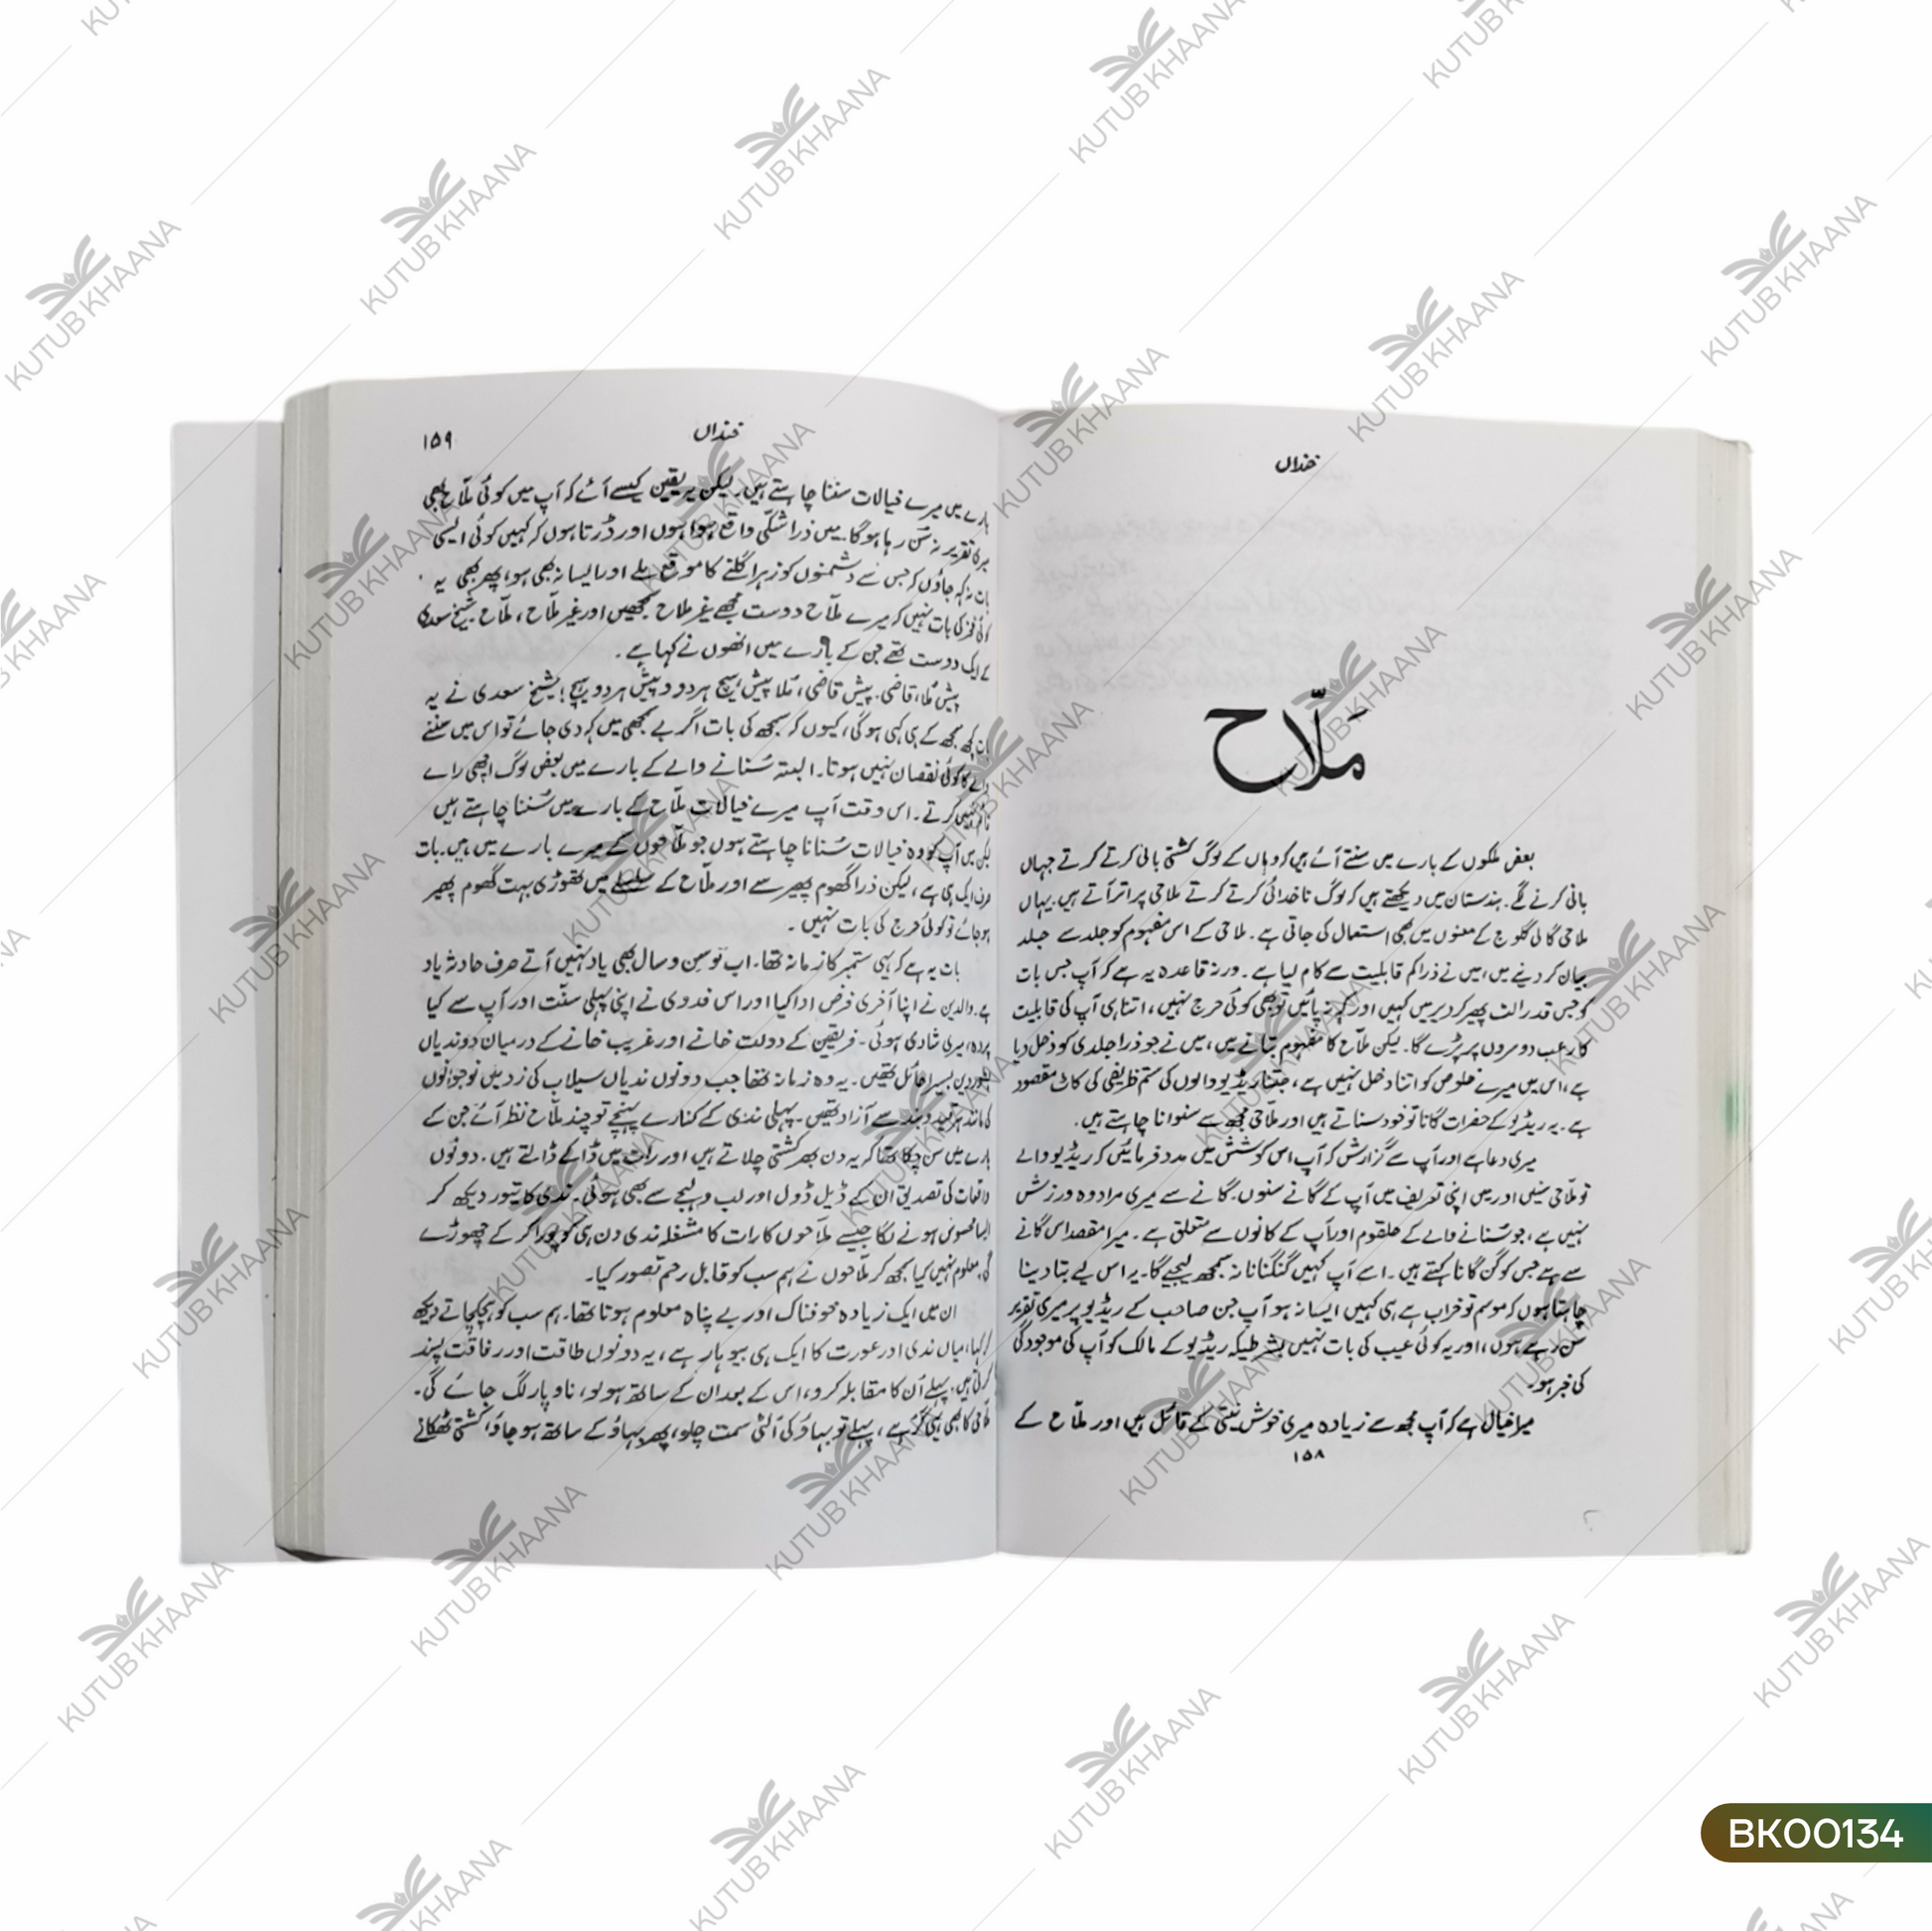 خنداں
ملّاح
بعض ملکوں کے بارے میں سنتے آئے ہیں کہ وہاں کے لوگ کشتی بانی کرتے کرتے جہاں
بانی کرنے لگے۔ ہندستان میں دیکھتے ہیں کہ لوگ ناخدائی کرتے کرتے ملاحی پر اتر آتے ہیں۔ یہاں
ملاحی گالی گلوج کے معنوں میں بھی استعمال کی جاتی ہے۔ ملاحی کے اس مفہوم کو جلد سے جلد
بیان کر دینے میں، میں نے ذرا کم قابلیت سے کام لیا ہے۔ ورنہ قاعدہ یہ ہے کہ آپ جس بات
کو جس قدر الٹ پھیر کر دیر میں کہیں اور کہہ نہ پائیں تو بھی کوئی حرج نہیں، اتنا ہی آپ کی قابلیت
کا رعب دوسروں پر پڑے گا۔ لیکن ملّاح کا مفہوم بتانے میں، میں نے جو ذرا جلدی کو دخل دیا
ہے، اس میں میرے خلوص کو اتنا دخل نہیں ہے، جتنا ریڈیو والوں کی ستم ظریفی کی کاٹ مقصود
ہے۔ یہ ریڈیو کے حضرات گانا تو خود سناتے ہیں اور ملّاحی مجھ سے سنوانا چاہتے ہیں۔
میری دعا ہے اور آپ سے گزارش کہ آپ اس کوشش میں مدد فرمائیں کہ ریڈیو والے
تو ملّاحی سنیں اور میں اپنی تعریف میں آپ کے گانے سنوں۔ گانے سے میری مراد وہ ورزش
نہیں ہے، جو سُنانے والے کے حلقوم اور آپ کے کانوں سے متعلق ہے۔ میرا مقصد اس گانے
سے ہے جس کو گن گانا کہتے ہیں۔ اسے آپ کہیں گنگنانا نہ سمجھ لیجیے گا۔ یہ اس لیے بتا دینا
چاہتا ہوں کہ موسم تو خراب ہے ہی کہیں ایسا نہ ہو آپ جن صاحب کے ریڈیو پر میری تقریر
سن رہے ہوں، اور یہ کوئی عیب کی بات نہیں بشرطیکہ ریڈیو کے مالک کو آپ کی موجودگی
کی خبر ہو۔
میرا خیال ہے کہ آپ مجھ سے زیادہ میری خوش نیتی کے قائل ہیں اور ملّاح کے
۱۵۸
خنداں
۱۵۹
بارے میں میرے خیالات سننا چاہتے ہیں۔ لیکن یہ یقین کیسے آئے کہ آپ میں کوئی ملّاح بھی
میری تقریر نہ سُن رہا ہوگا۔ میں ذرا شکّی واقع ہوا ہوں اور ڈرتا ہوں کہ کہیں کوئی ایسی
بات نہ کہہ جاؤں کہ جس سے دشمنوں کو زہر اگلنے کا موقع ملے اور ایسا نہ بھی ہو، پھر بھی یہ
کوئی فخر کی بات نہیں کہ میرے ملّاح دوست مجھے غیر ملاح سمجھیں اور غیر ملّاح، ملّاح۔ شیخ سعدی
کے ایک دوست تھے جن کے بارے میں انھوں نے کہا ہے۔
پیش مُلا، قاضی۔ پیش قاضی، مُلا پیش ہیچ ہر دو و پیش ہر دو ہیچ! شیخ سعدی نے یہ
بات کچھ سمجھ کے ہی کہی ہوگی، کیوں کہ سمجھ کی بات اگر بے سمجھی میں کہہ دی جائے تو اس میں سننے
والے کا کوئی نقصان نہیں ہوتا۔ البتہ سُنانے والے کے بارے میں بعض لوگ اچھی رائے
قائم نہیں کرتے۔ اس وقت آپ میرے خیالات ملّاح کے بارے میں سُننا چاہتے ہیں
لیکن میں آپ کو وہ خیالات سُنانا چاہتے ہوں جو ملّاحوں کے میرے بارے میں ہیں۔ بات
دونوں ایک ہی ہے، لیکن ذرا گھوم پھیر سے اور ملّاح کے سلسلے میں تھوڑی بہت گھوم پھیر
ہو جائے تو کوئی حرج کی بات نہیں۔
بات یہ ہے کہ یہی ستمبر کا زمانہ تھا۔ اب تو سِن و سال بھی یاد نہیں آتے صرف حادثہ یاد
ہے۔ والدین نے اپنا آخری فرض ادا کیا اور اس فدوی نے اپنی پہلی سنّت اور آپ سے کیا
پردہ، میری شادی ہوئی۔ فریقین کے دولت خانے اور غریب خانے کے درمیان دو ندیاں
حائل تھیں۔ یہ وہ زمانہ تھا جب دونوں ندیاں سیلاب کی زد میں نوجوانوں
کی مانند ہر قید و بند سے آزاد تھیں۔ پہلی ندی کے کنارے پہنچے تو چند ملّاح نظر آئے جن کے
بارے میں سن چکا تھا کہ یہ دن بھر کشتی چلاتے ہیں اور رات میں ڈاکے ڈالتے ہیں۔ دونوں
واقعات کی تصدیق ان کے ڈیل ڈول اور لب و لہجے سے بھی ہوئی۔ ندی کا تیور دیکھ کر
ایسا محسوس ہونے لگا جیسے ملّاحوں کا رات کا مشغلہ ندی دن ہی کو پورا کر کے چھوڑے
گی، معلوم نہیں کیا سمجھ کر ملّاحوں نے ہم سب کو قابل رحم تصور کیا۔
ان میں ایک زیادہ خوفناک اور بے پناہ معلوم ہوتا تھا۔ ہم سب کو ہچکچاتے دیکھ
کر کہا، میاں ندی اور عورت کا ایک ہی بیوہار ہے، یہ دونوں طاقت اور رفاقت پسند
کرتی ہیں۔ پہلے اُن کا مقابلہ کرو، اس کے بعد ان کے ساتھ ہو لو، ناؤ پار لگ جائے گی۔
ملّاحی کا بھی یہی گُر ہے، پہلے تو بہاؤ کی اُلٹی سمت چلو، پھر بہاؤ کے ساتھ ہو جاؤ، کشتی ٹھکانے
KUTUB KHAANA
BK00134